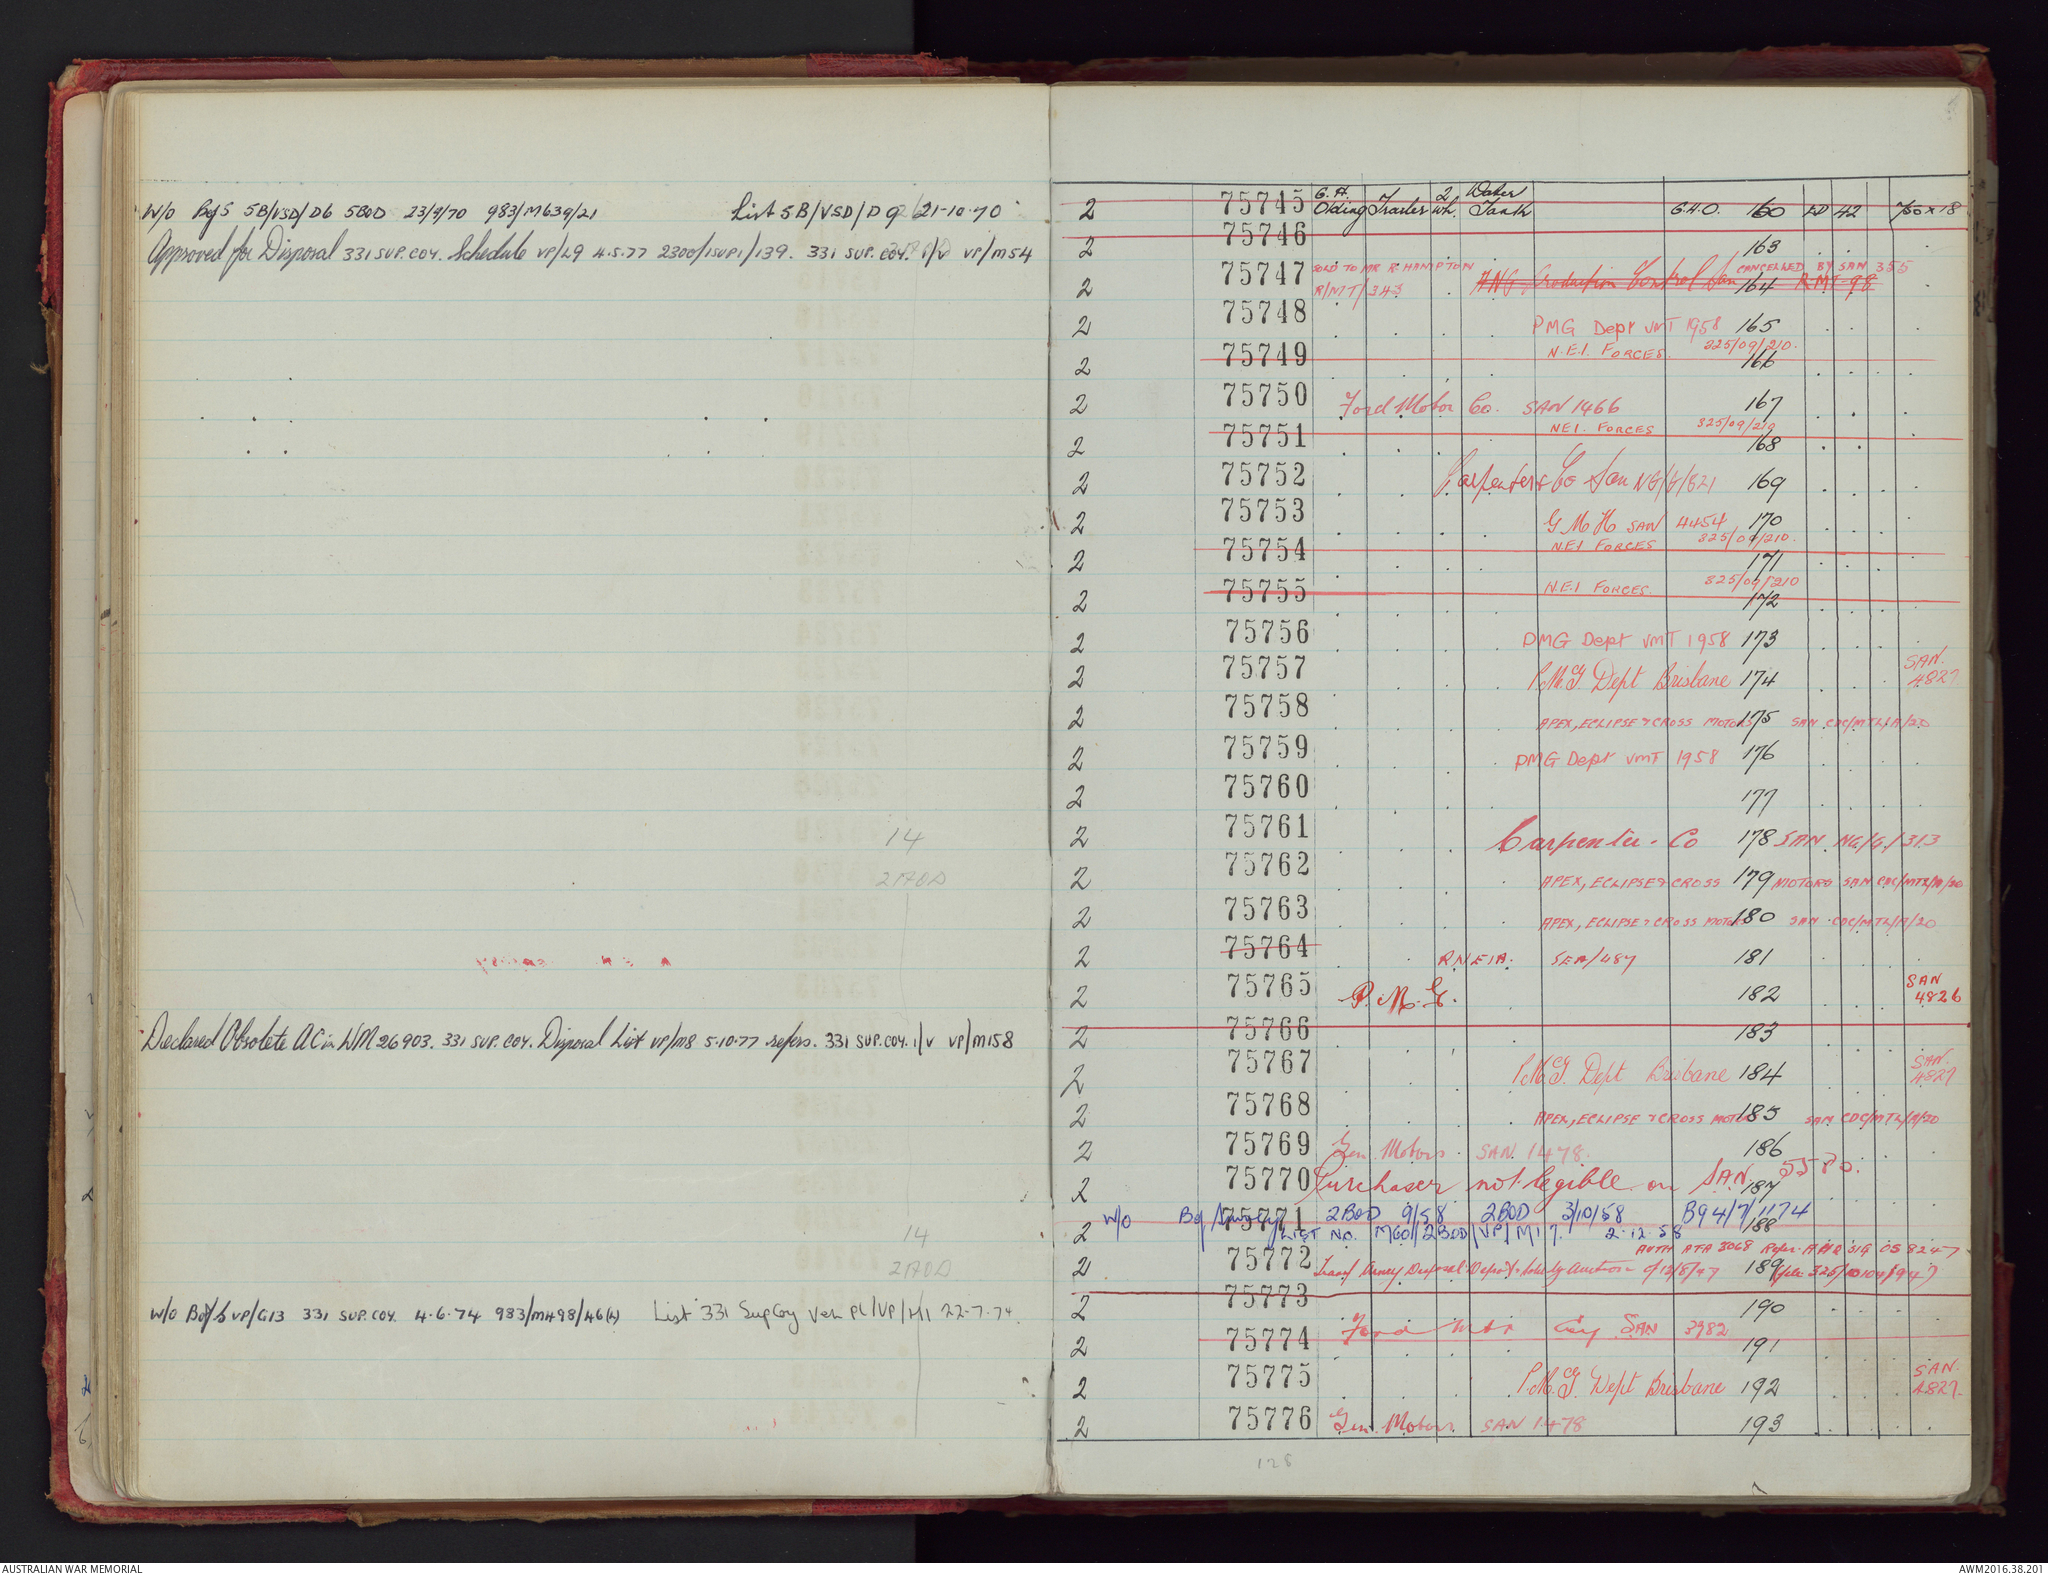 W/O Bof S 5B/VSD/D6 5BOD 23/9/70 983/M639/21 List 5B/VSD/D9 21-10-70
Approved for Disposal 331 SUP. COY. Schedule VP/29 4.5.77 2300/1SUP1/139. 331 SUP. COY. I/V VP/M54
14
2AOD
Declared Obsolete AC in WM 26903. 331 SUP. COY. Disposal List VP/M8 5.10.77 refers. 331 SUP. COY. I/V VP/M158
14
2AOD
W/O Bof S VP/G13 331 SUP. COY. 4.6.74 983/M498/46(4) List 331 Sup Coy Veh PL/VP/H1 22.7.74.
2 75745 G.H. Olding Trailer 2 Wh. Water Tank G.H.O. 160 LD 42 750 x 18
2 75746 163
2 75747 SOLD TO MR R HAMPTON R/MT/343 ANG Production Control San 164 CANCELLED BY SAN 355 R-MT-98
2 75748 PMG Dept VMT 1958 165
2 75749 N.E.I. FORCES. 325/09/210. 166
2 75750 Ford Motor Co. SAN 1466 167
2 75751 NEI. FORCES 325/09/210 168
2 75752 Carpenters Co San NG/G/321 169
2 75753 G M H SAN 4454 170
2 75754 N.E.I FORCES 325/09/210. 171
2 75755 N.E.I FORCES. 325/09/210 172
2 75756 PMG Dept VMT 1958 173
2 75757 P.M.G. Dept Brisbane 174 SAN. 4827
2 75758 APEX, ECLIPSE & CROSS MOTORS 175 SAN CDC/MTL/A/20
2 75759 PMG Dept VMT 1958 176
2 75760 177
2 75761 Carpenter. Co 178 SAN NG/G/313
2 75762 APEX, ECLIPSE & CROSS 179 MOTORS SAN CDC/MTL/A/20
2 75763 APEX, ECLIPSE & CROSS MOTORS 180 SAN CDC/MTL/A/20
2 75764 RNEIA. SEA/487 181
2 75765 P.M.G. 182 SAN 4826
2 75766 183
2 75767 P.M.G. Dept Brisbane 184 SAN. 4827
2 75768 APEX, ECLIPSE & CROSS MOTORS 185 SAN CDC/MTL/A/20
2 75769 Gen. Motors. SAN 1478. 186
2 75770 Purchaser not legible on SAN 187
2 75771 W/O 2BOD 9/58 2BOD 3/10/58 B94/7/1174 188
LIST No. MGO/2BOD/VP/M17. 2.12.58
2 75772 AUTH ATA 3068 Refer AHQ SIG OS 8247
Army Disposal Depot Auction 189
2 75773 190
2 75774 Ford Mtr Coy SAN 3982 191
2 75775 P.M.G. Dept Brisbane 192 SAN. 4827.
2 75776 Gen. Motors. SAN 1478 193
128
AUSTRALIAN WAR MEMORIAL
AWM2016.38.201